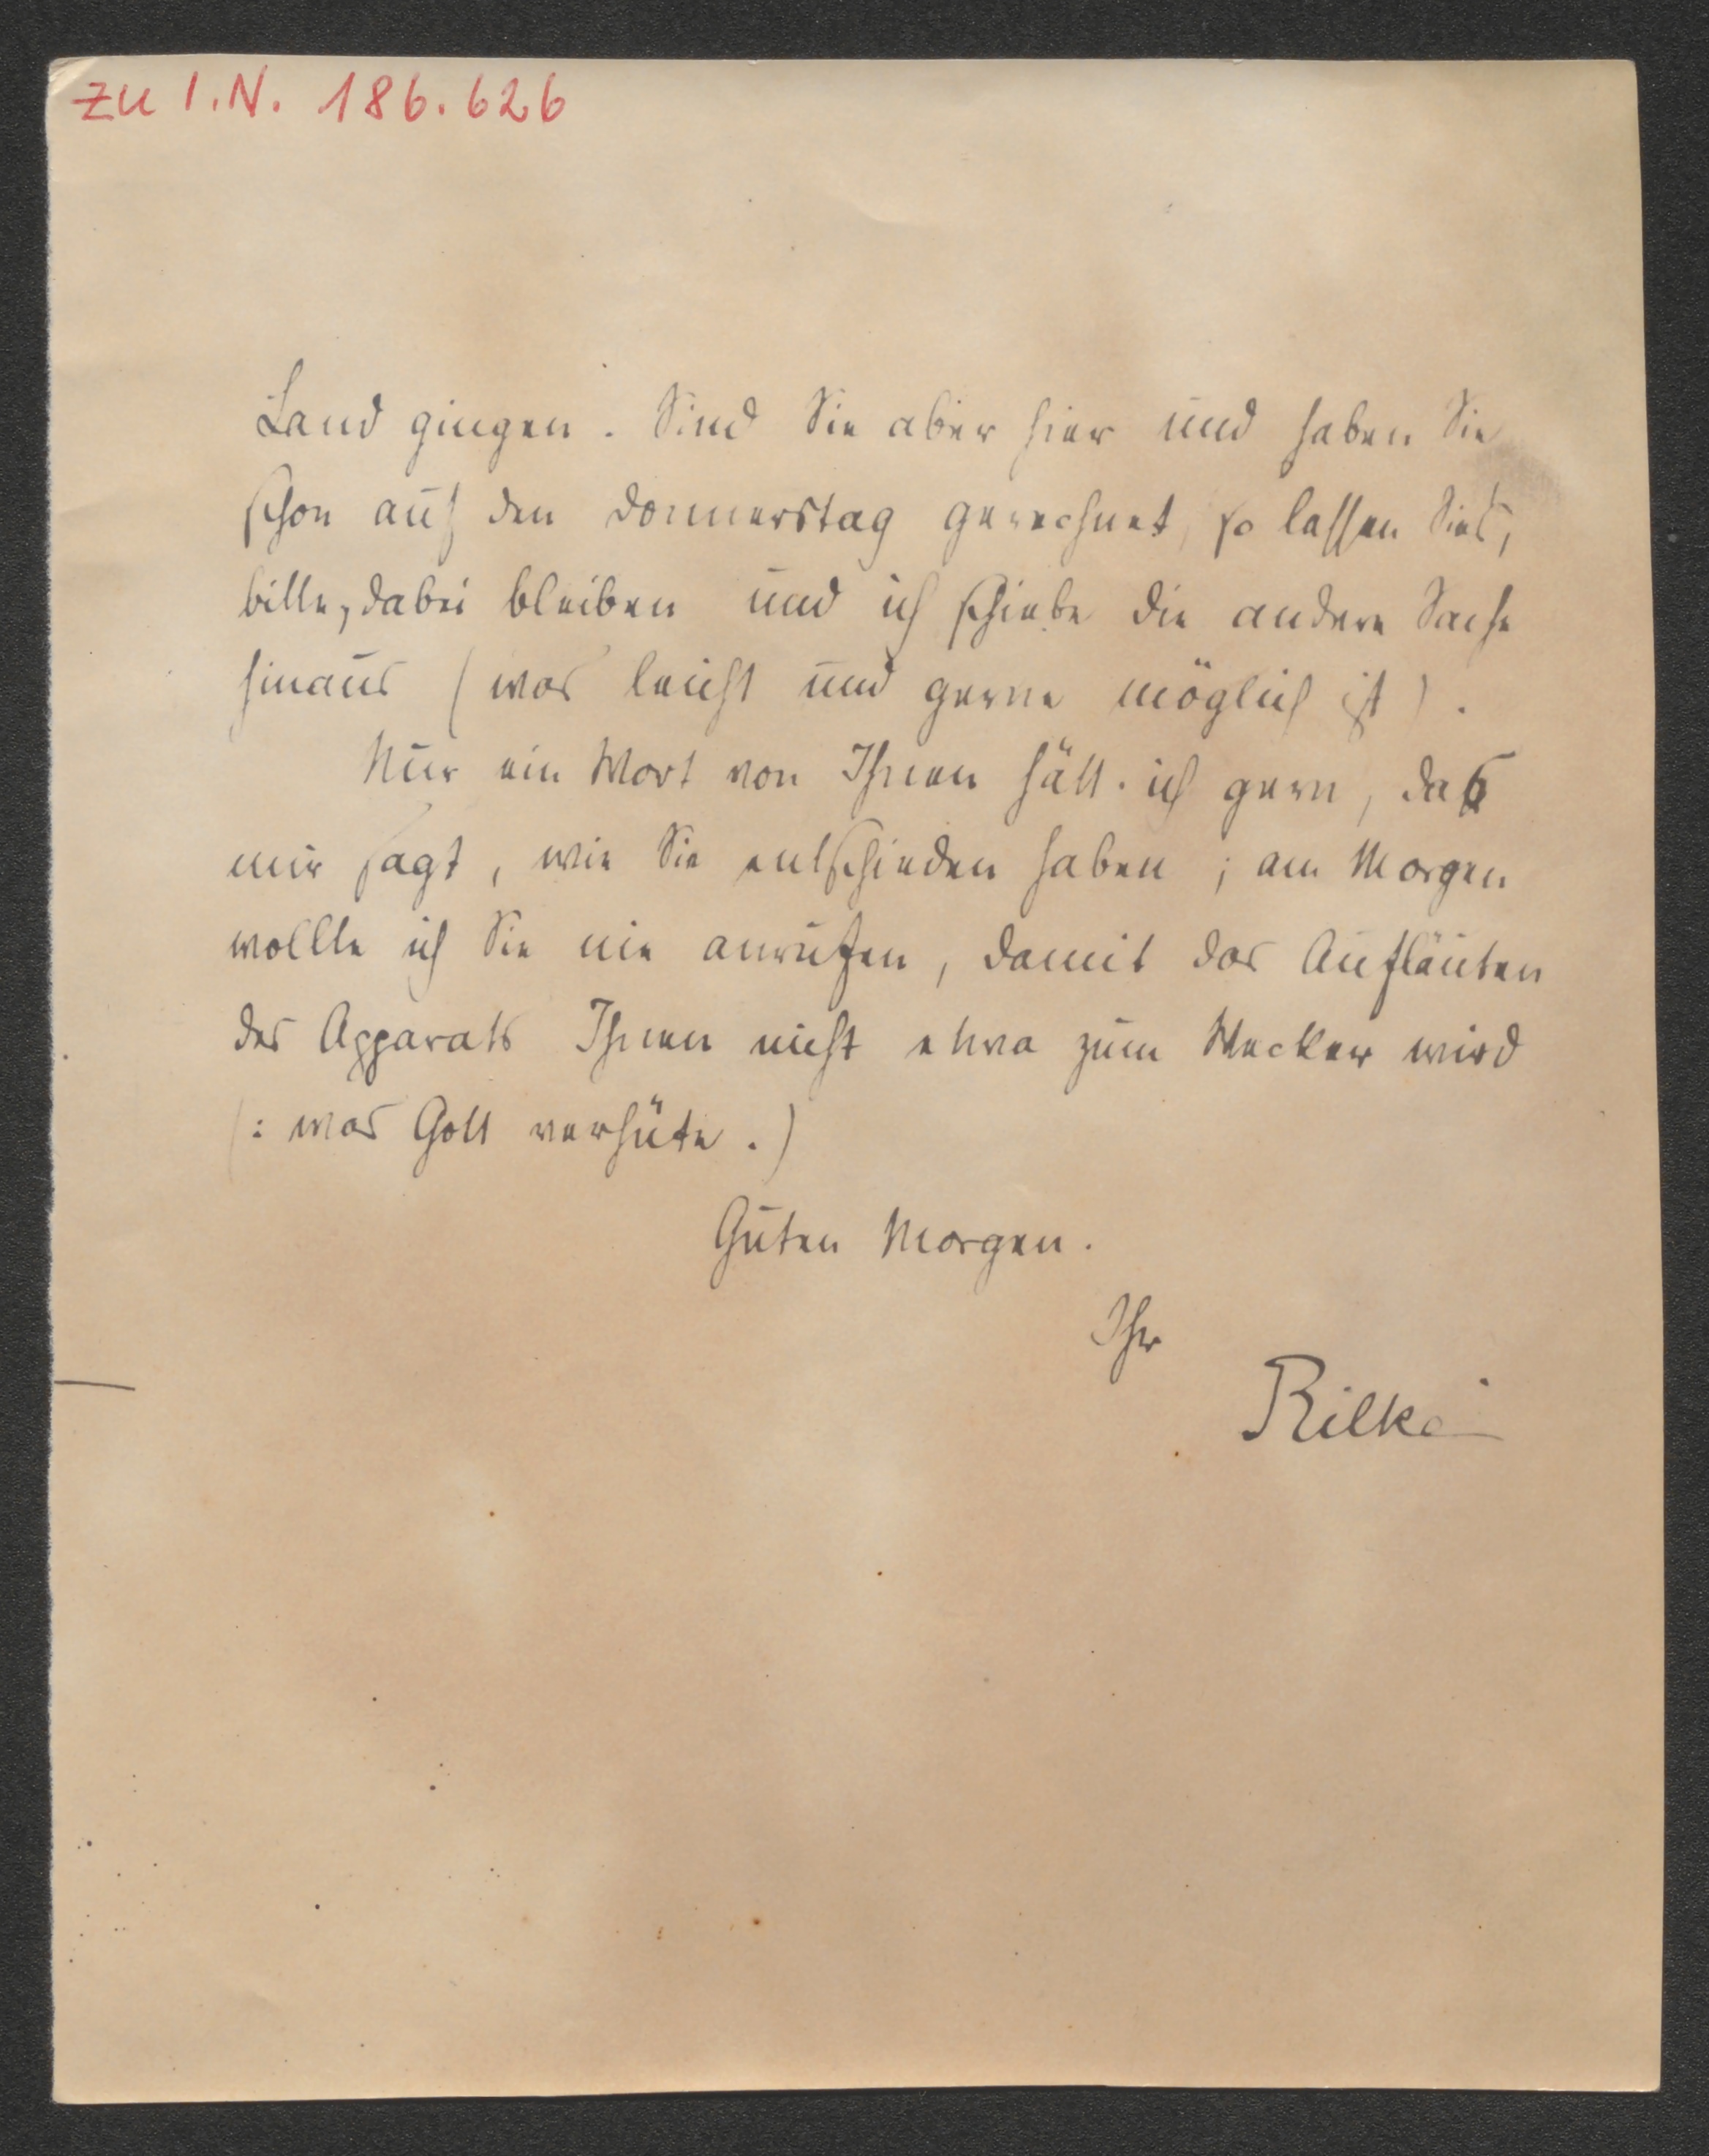 zu I.N. 186.626
Land gingen. Sind Sie aber hier und haben Sie
schon auf den Donnerstag gerechnet, so lassen Sies,
bitte, dabei bleiben und ich schiebe die andere Sache
hinaus (was leicht und gerne möglich ist).
Nur ein Wort von Ihnen hätt' ich gern, das
mir sagt, wie Sie entschieden haben; am Morgen
wollte ich Sie nie anrufen, damit das Aufläuten
des Apparats Ihnen nicht etwa zum Wecker wird
(: was Gott verhüte.)
Guten Morgen.
Ihr
Rilke